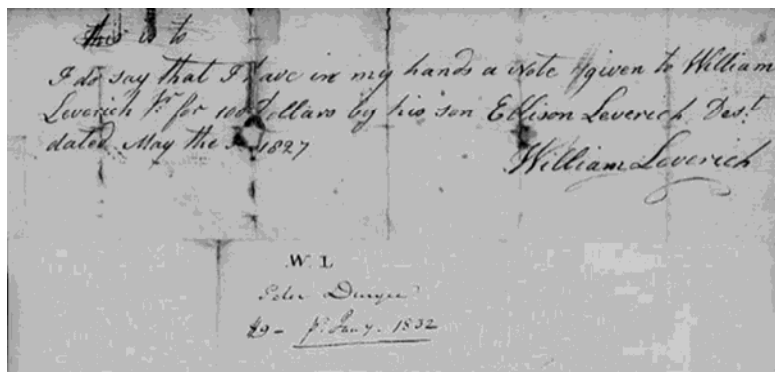 this is to
I do say that I have in my hands a Note given to William
Leverich Sr for 100 Dollars by his son Ellison Leverich Des.t
dated May the 1827
William Leverich
W. L
Duryee
Jany. 1832